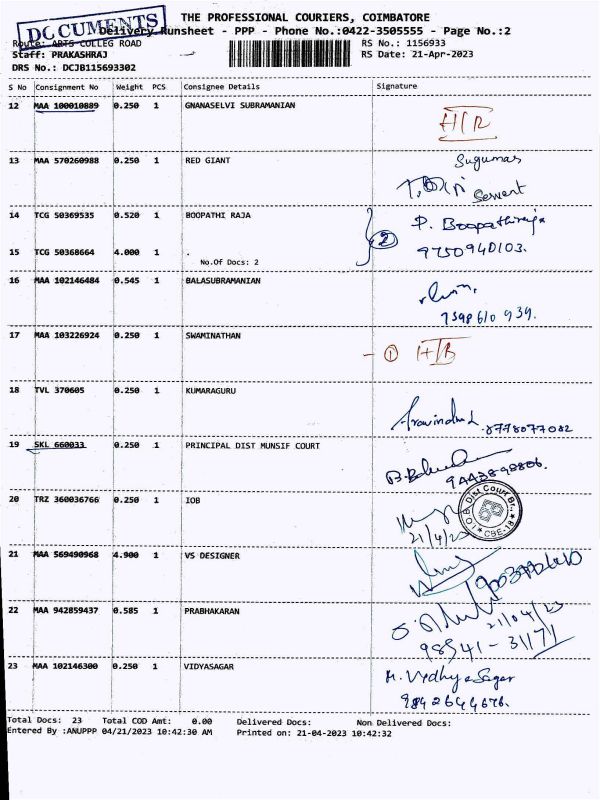 DOCUMENTS
THE PROFESSIONAL COURIERS, COIMBATORE
Delivery Runsheet - PPP - Phone No.:0422-3505555 - Page No.:2
Route: ARTS COLLEG ROAD RS No.: 1156933
Staff: PRAKASHRAJ RS Date: 21-Apr-2023
DRS No.: DCJB115693302
S No Consignment No Weight PCS Consignee Details Signature
12 MAA 100010889 0.250 1 GNANASELVI SUBRAMANIAN
13 MAA 570260988 0.250 1 RED GIANT Sugumar
Servent
14 TCG 50369535 0.520 1 BOOPATHI RAJA P. Boopathiraja
2
15 TCG 50368664 4.000 1 . 9750940103.
No.Of Docs: 2
16 MAA 102146484 0.545 1 BALASUBRAMANIAN
7598610939.
17 MAA 103226924 0.250 1 SWAMINATHAN
- 1
18 TVL 370605 0.250 1 KUMARAGURU
8778077082
19 SKL 660033 0.250 1 PRINCIPAL DIST MUNSIF COURT
9443898806.
20 TRZ 360036766 0.250 1 IOB
21/4/23
I.O.B. Dist Court Br., CBE-18
21 MAA 569490968 4.900 1 VS DESIGNER
22 MAA 942859437 0.585 1 PRABHAKARAN
21/04/23
98941-31171
23 MAA 102146300 0.250 1 VIDYASAGAR M. Vedhya Sagar
9842644676.
Total Docs: 23 Total COD Amt: 0.00 Delivered Docs: Non Delivered Docs:
Entered By :ANUPPP 04/21/2023 10:42:30 AM Printed on: 21-04-2023 10:42:32